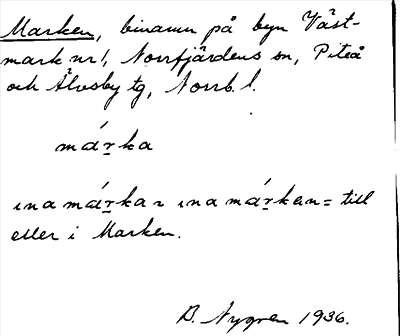 Marken, binamn på byn Väst-
mark nr 1, Norrfjärdens sn, Piteå
och Älvsby tg, Norrb. l.
má r̠ka
ɩna má r̠ka ɩna má r̠kan = till
eller i Marken.
B. Nygren 1936.